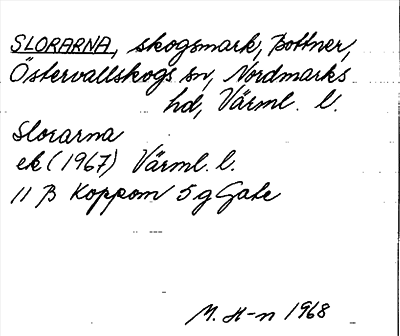 SLORARNA, skogsmark, Bottner,
Östervallskogs sn, Nordmarks
hd, Värml. l.
Slorarna
ek (1967) Värml. l.
11 B Koppom 5 g Gate
M. H-n 1968